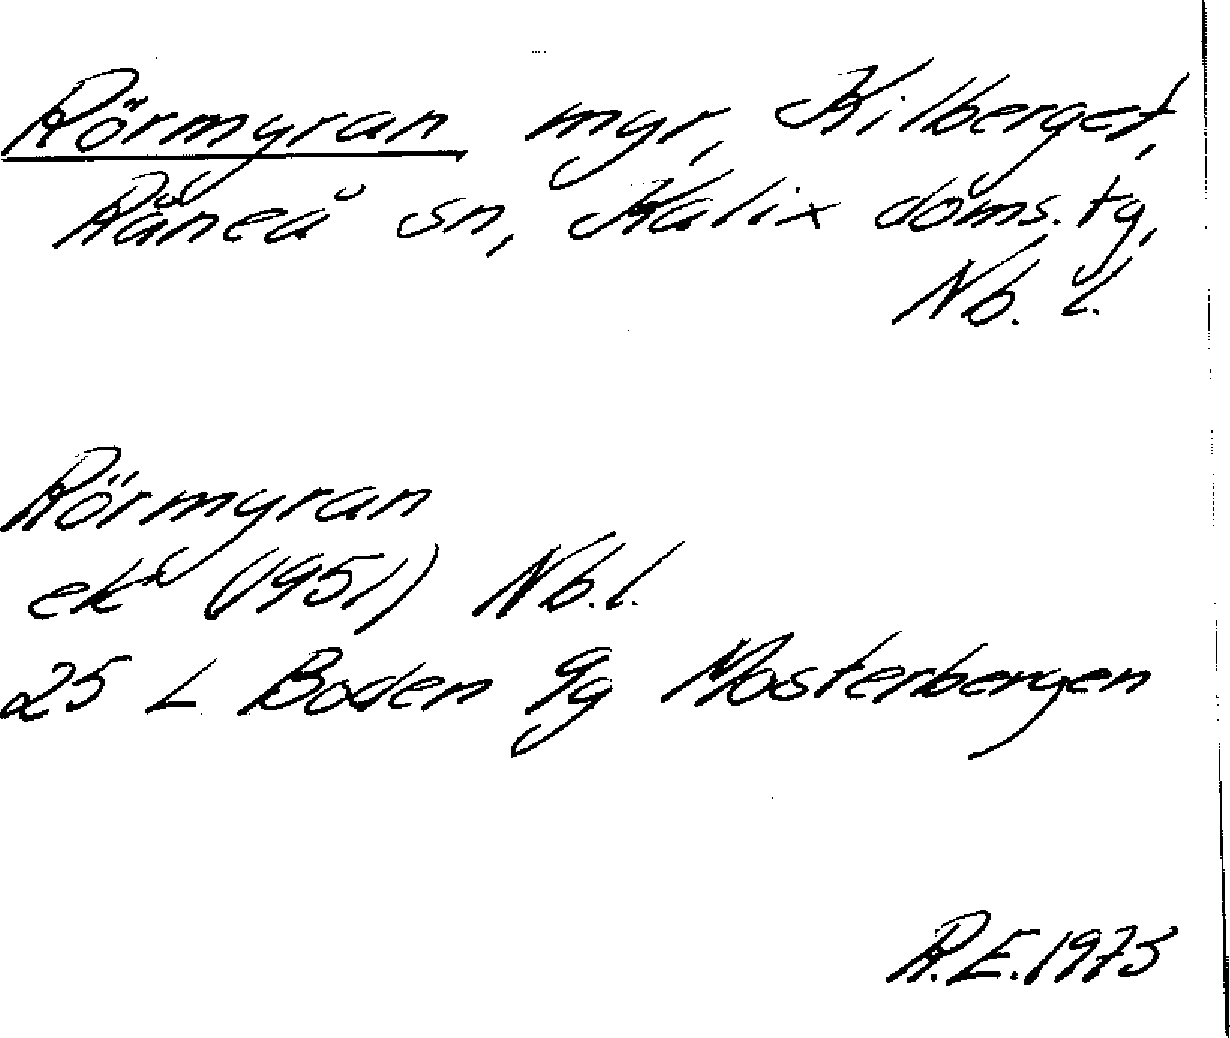 Rörmyran myr, Kilberget,
Råneå sn, Kalix doms. tg,
Nb. l.
Rörmyran
ek (1951) Nb. l.
25 L Boden 9g Mosterbergen
R.E. 1975